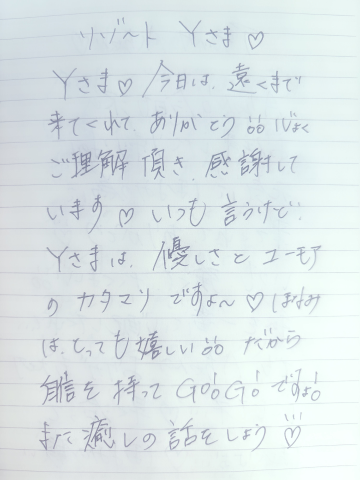 リゾート Yさま♡
Yさま♡ 今日は、遠くまで
来てくれて、ありがとう!!
ご理解 頂き、感謝して
います♡ いつも 言うけど、
Yさまは、優しさと ユーモア
の カタマリ ですよ〜♡
は、とっても 嬉しい!! だから
自信を 持って GO!GO! ですよ!
また 癒しの 話を しよう♡